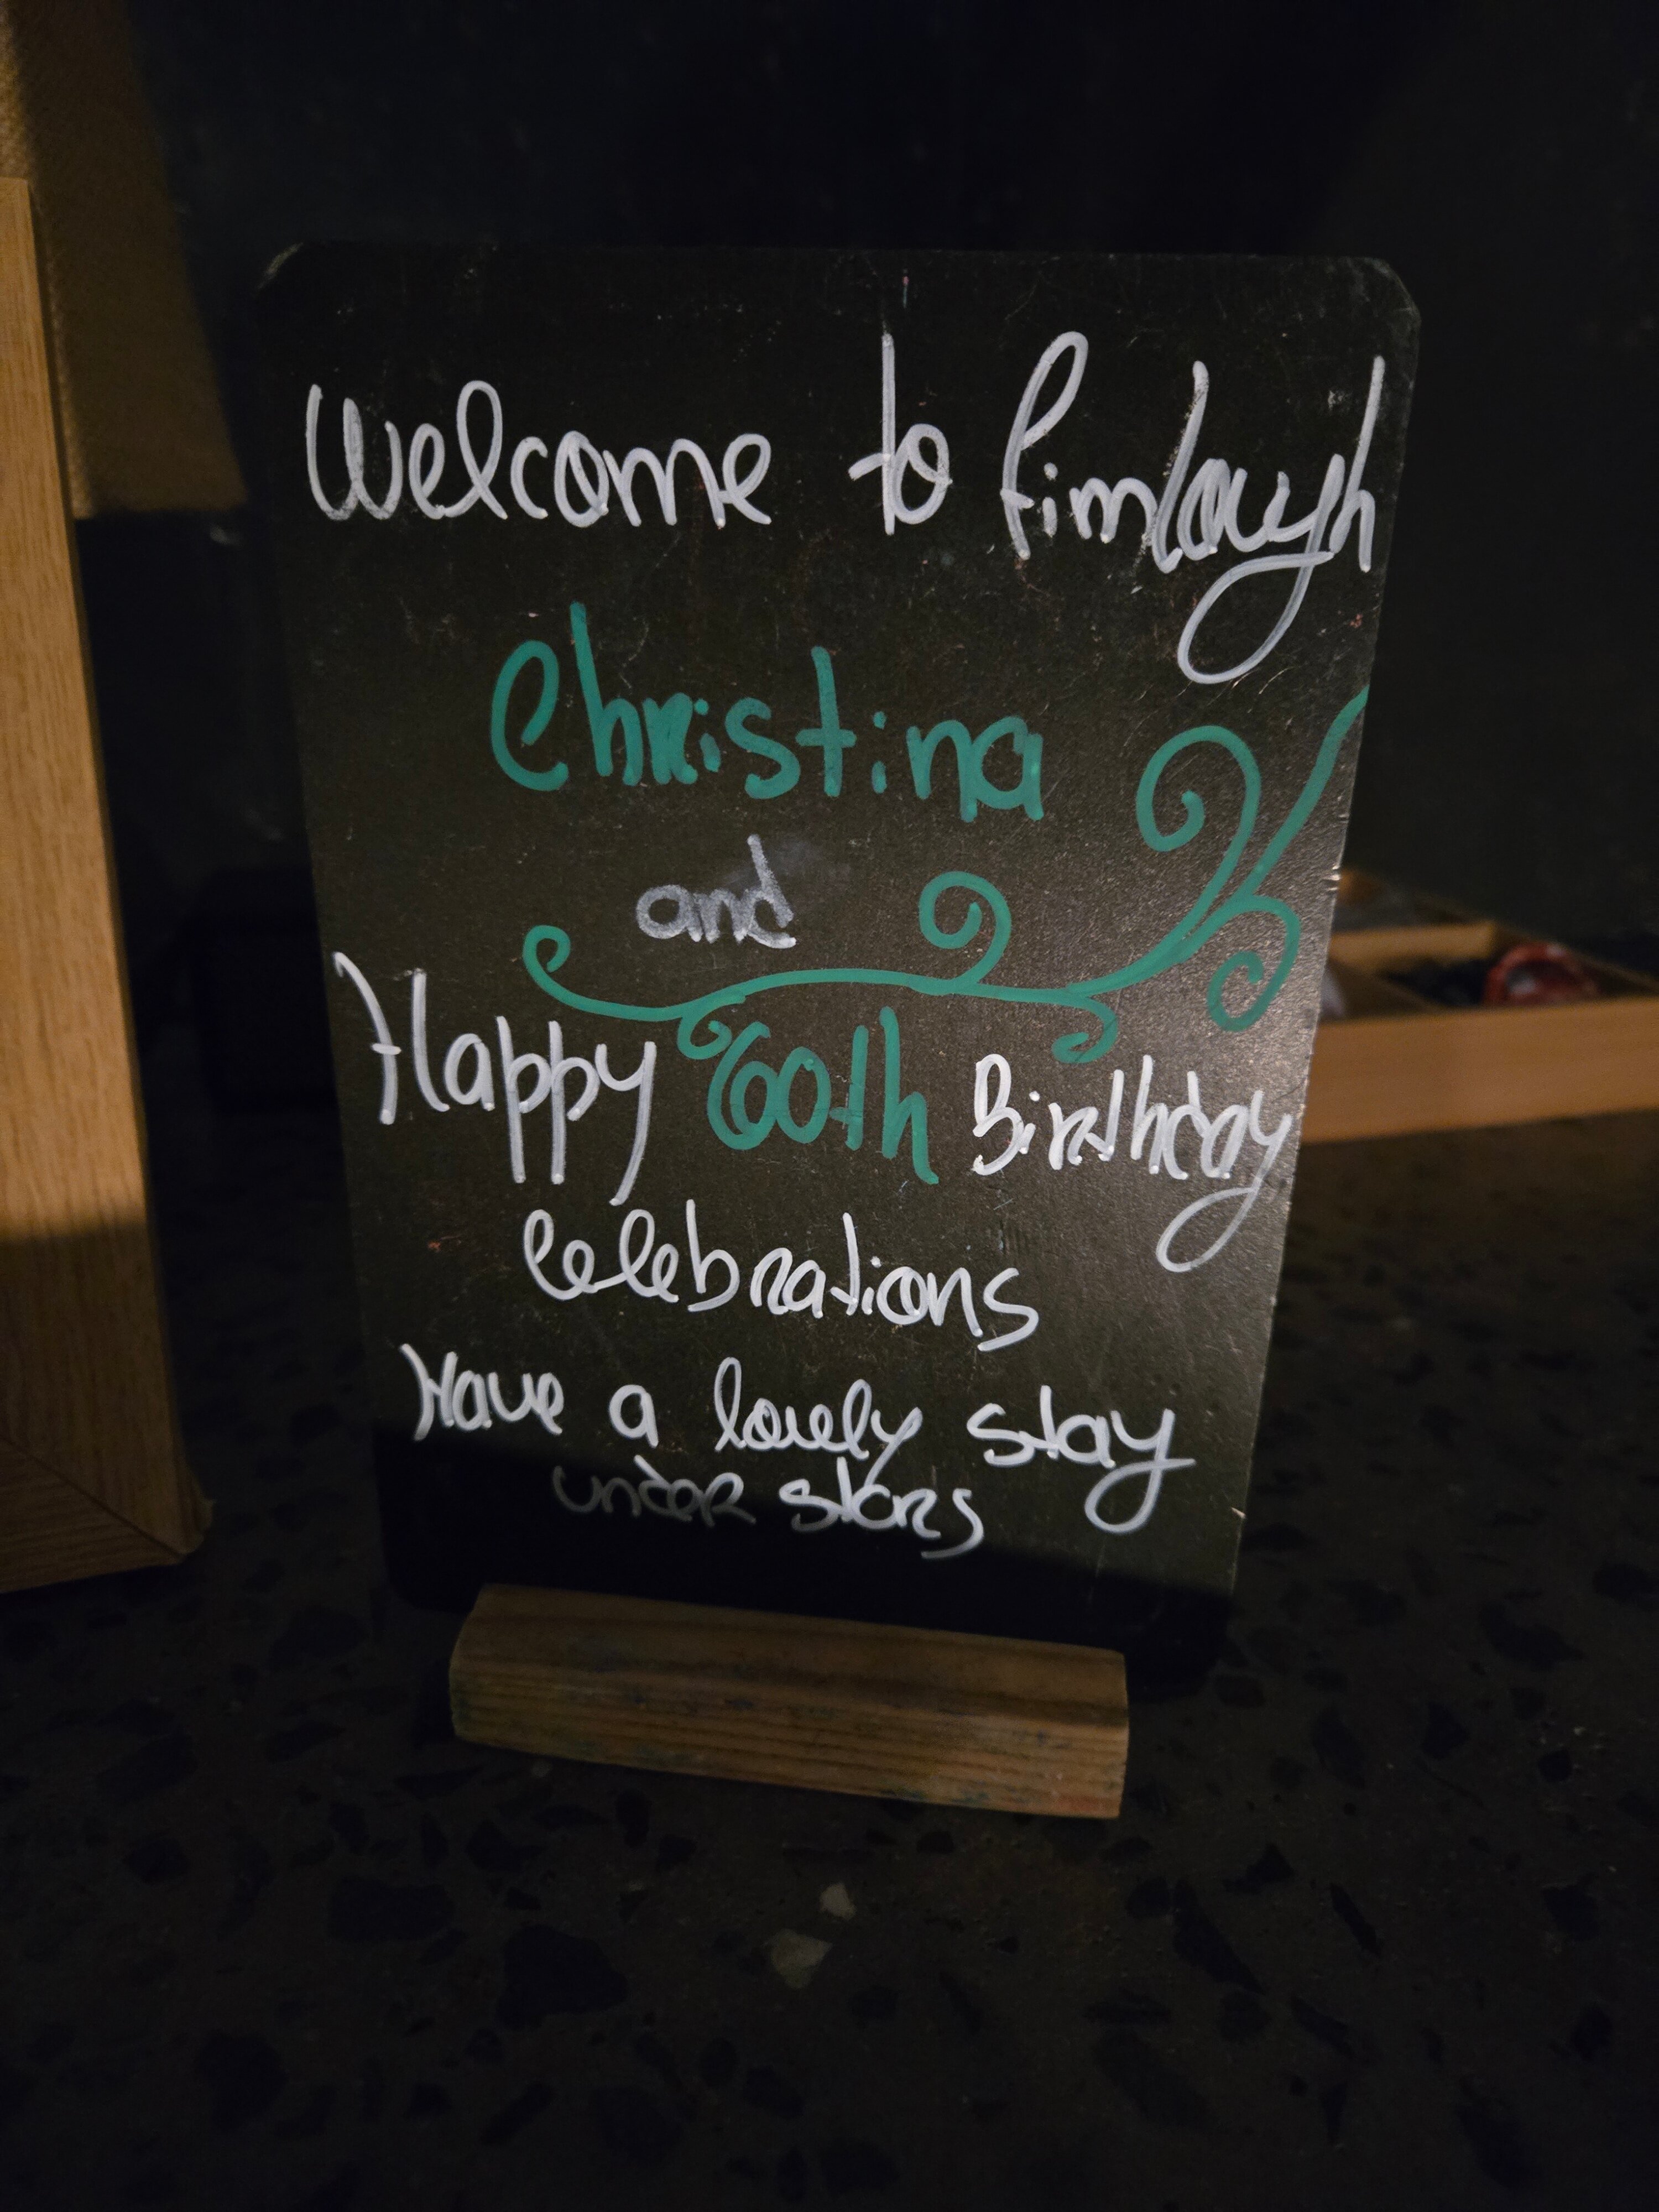 Welcome to Finlough
Christina
and
Happy 60th Birthday
Celebrations
Have a lovely stay
under stars